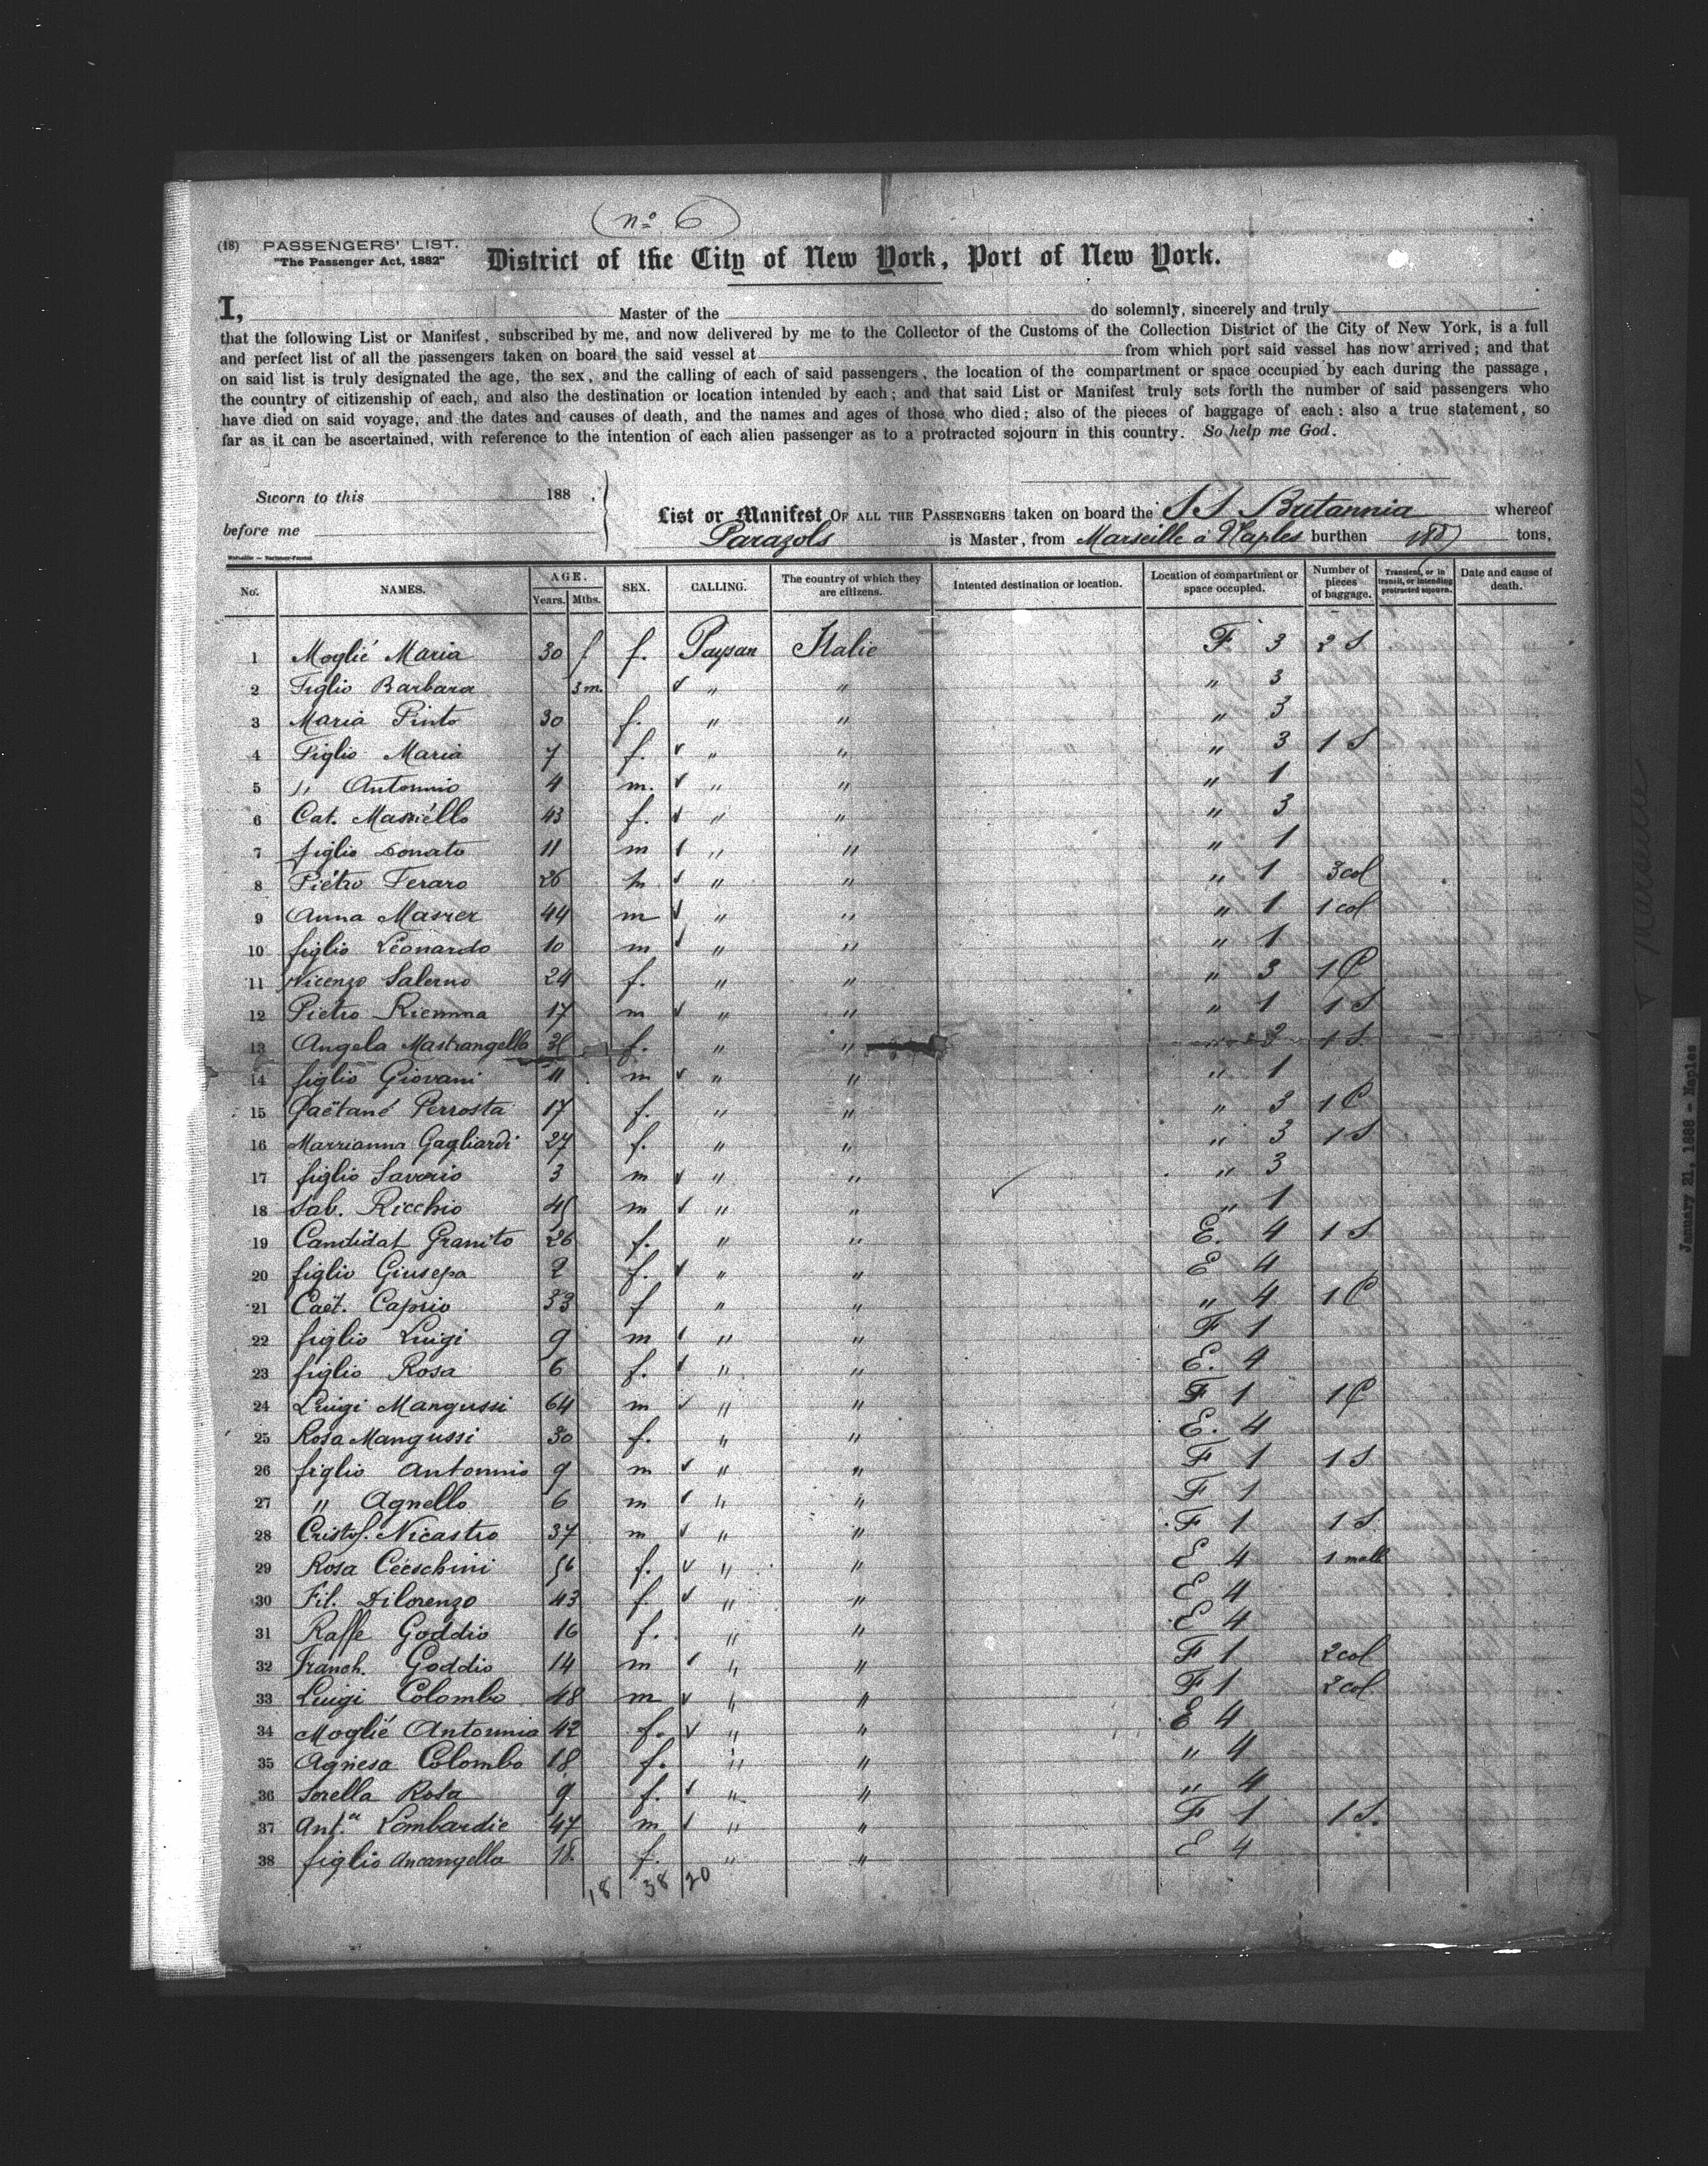 nº 6
(18) PASSENGERS' LIST.
"The Passenger Act, 1882"
District of the City of New York, Port of New York.
I, Master of the do solemnly, sincerely and truly
that the following List or Manifest, subscribed by me, and now delivered by me to the Collector of the Customs of the Collection District of the City of New York, is a full
and perfect list of all the passengers taken on board the said vessel at from which port said vessel has now arrived; and that
on said list is truly designated the age, the sex, and the calling of each of said passengers, the location of the compartment or space occupied by each during the passage,
the country of citizenship of each, and also the destination or location intended by each; and that said List or Manifest truly sets forth the number of said passengers who
have died on said voyage, and the dates and causes of death, and the names and ages of those who died; also of the pieces of baggage of each: also a true statement, so
far as it can be ascertained, with reference to the intention of each alien passenger as to a protracted sojourn in this country. So help me God.
Sworn to this 188 .
before me
List or Manifest OF ALL THE PASSENGERS taken on board the SS Britannia whereof
Parazols is Master, from Marseille a Naples burthen tons,
No. NAMES. AGE. Years. Mths. SEX. CALLING. The country of which they are citizens. Intented destination or location. Location of compartment or space occupied. Number of pieces of baggage. Transient, or in transit, or intending protracted sojourn. Date and cause of death.
1 Moglié Maria 30 f. Paysan Italie F 3 2 S
2 Figlio Barbara 3 m. " " " 3
3 Maria Pinto 30 f. " " " 3
4 Figlio Maria 7 f. " " " 3 1 S
5 " Antonnio 4 m. " " " 1
6 Cat. Masriéllo 43 f. " " " 3
7 figlio Donato 11 m " " " 1
8 Piétro Feraro 26 m " " " 1 3 col
9 Anna Masrer 44 m " " " 1 1 col
10 figlio Léonardo 10 m " " " 1
11 Nicenzo Salerno 24 f. " " " 3 1 C
12 Pietro Riemma 17 m " " " 1 1 S
13 Angela Mastrangello f. " " " 3 1 S
14 figlio Giovani 11 m " " " 1
15 Gaëtané Perrosta 17 f. " " " 3 1 C
16 Marrianna Gagliardi 27 f. " " " 3 1 S
17 figlio Saverio 3 m " " " 3
18 Sab. Ricchio 45 m " " " 1
19 Candidat Granito 26 f. " " E. 4 1 S
20 figlio Giusepa 2 f. " " E 4
21 Caët. Caprio 33 f " " " 4 1 C
22 figlio Luigi 9 m " " F 1
23 figlio Rosa 6 f. " " E. 4
24 Luigi Mangussi 64 m " " F 1 1 C
25 Rosa Mangussi 30 f. " " E. 4
26 figlio Antonnio 9 m " " F 1 1 S
27 " Agnello 6 m " " F 1
28 Cristof. Nicastro 37 m " " F 1 1 S
29 Rosa Céeschini 56 f. " " E 4 1 mall
30 Fil. Dilorenzo 43 f. " " E 4
31 Raffe Goddio 16 f. " " E 4
32 Franch. Goddio 14 m " " F 1 2 col
33 Luigi Colombo 48 m " " F 1 2 col
34 Moglié Antonnia 42 f. " " E 4
35 Agnesa Colombo 18 f. " " " 4
36 Sorella Rosa 9 f. " " " 4
37 Ant.a Lombardie 47 m " " F 1 1 S.
38 figlio Ancangella 18 f. " " E 4
18 38 20
January 21, 1888 - Naples